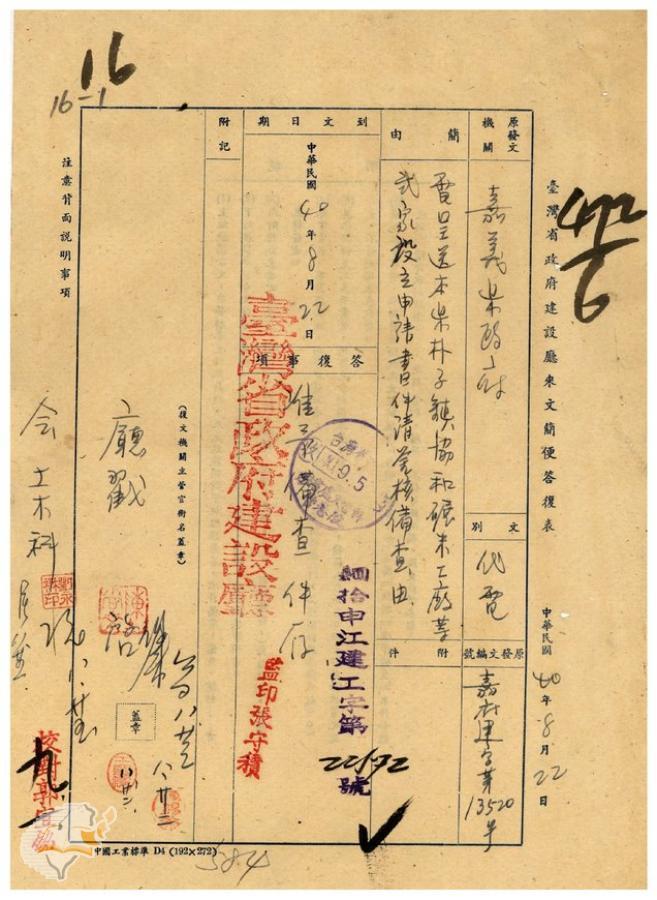 16
16-1
472
6
臺灣省政府建設廳來文簡便答復表
中華民國40年8月22日
原發文機關
嘉義県政府
文別
代電
原發文編號
嘉府建字第13520号
簡由
電呈送本県朴子鎮協和碾米工廠等
貳家設立申請書件請鑒核備查由
附件
到文日期
中華民國40年8月22日
答復事項
准予備查件存
臺灣省政府建設廳
監印張守積
9.5
肆拾申江建工字第
22592
號
附記
(復文機關主管官銜名蓋章)
廳戳
蓋章
八廿二
会土木科
校對郭
注意背面說明事項
中國工業標準 D4 (192×272)
584